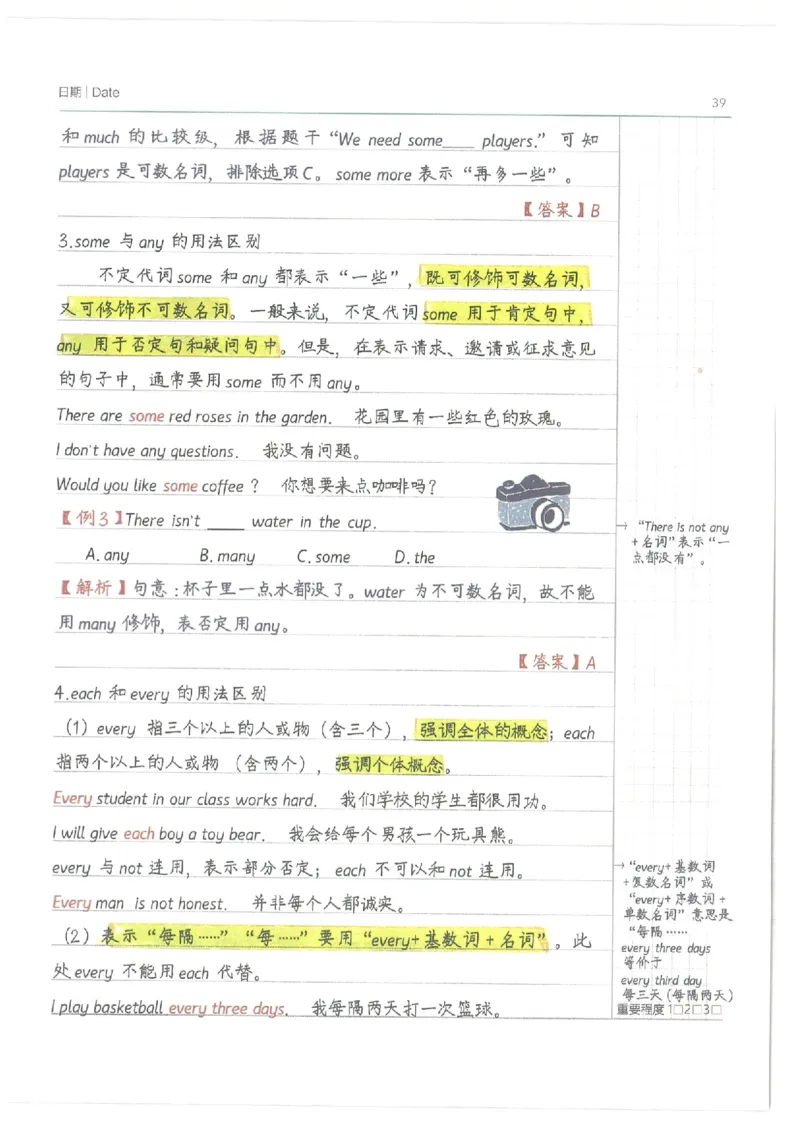 日期 | Date
39
和 much 的比较级，根据题干“We need some____ players.”可知
players 是可数名词，排除选项C。some more 表示“再多一些”。
【答案】B
3.some 与 any 的用法区别
不定代词 some 和 any 都表示“一些”，既可修饰可数名词，
又可修饰不可数名词。一般来说，不定代词 some 用于肯定句中，
any 用于否定句和疑问句中。但是，在表示请求、邀请或征求意见
的句子中，通常要用 some 而不用 any。
There are some red roses in the garden. 花园里有一些红色的玫瑰。
I don't have any questions. 我没有问题。
Would you like some coffee？ 你想要来点咖啡吗？
【例3】There isn't ____ water in the cup.
A. any B. many C. some D. the
【解析】句意：杯子里一点水都没了。water 为不可数名词，故不能
用 many 修饰，表否定用 any。
【答案】A
4.each 和 every 的用法区别
（1）every 指三个以上的人或物（含三个），强调全体的概念；each
指两个以上的人或物（含两个），强调个体概念。
Every student in our class works hard. 我们学校的学生都很用功。
I will give each boy a toy bear. 我会给每个男孩一个玩具熊。
every 与 not 连用，表示部分否定；each 不可以和 not 连用。
Every man is not honest. 并非每个人都诚实。
（2）表示“每隔……”“每……”要用“every+基数词+名词”。此
处 every 不能用 each 代替。
I play basketball every three days. 我每隔两天打一次篮球。
→ “There is not any
+名词”表示“一
点都没有”。
→ “every+基数词
+复数名词”或
“every+序数词+
单数名词”意思是
“每隔……
every three days
等价于
every third day
每三天（每隔两天）
重要程度 1□2□3□